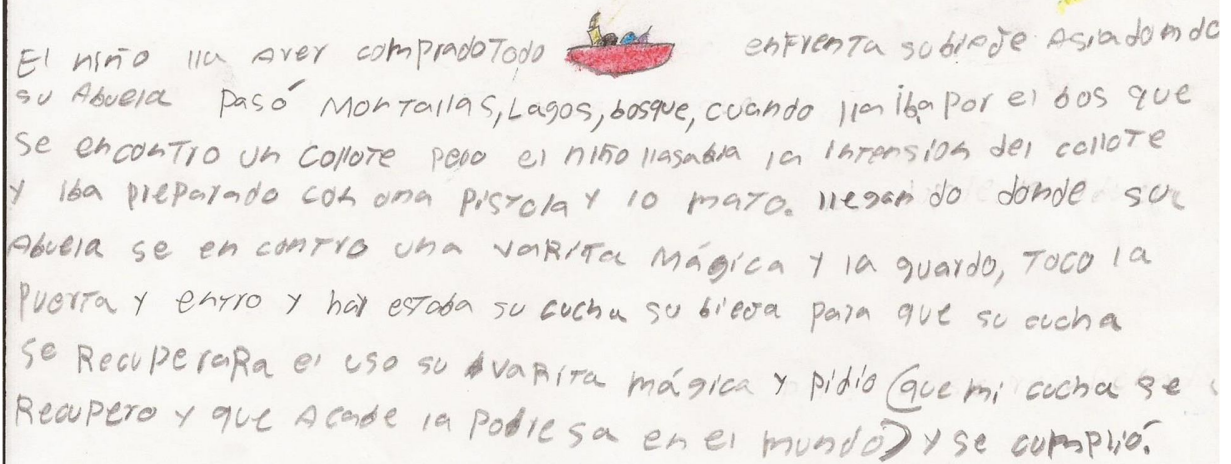 El niño lla aver compradoTodo enfrenta subieje Asiadonde
su Abuela pasó Montallas, Lagos, bosque, cuando lla iba por el bos que
se encontro un collote pero el niño llasabia la intension del collote
y iba preparado con una pistola y lo mato. llegan do donde su
Abuela se en contro una vaRita Mágica y la guardo, Toco la
puerta y entro y hay estaba su cucha su bieja para que su cucha
se RecupeRaRa el uso su vaRita mágica y pidio (que mi cucha se
Recupero y que Acabe la Pobresa en el mundo) y se cumplió.